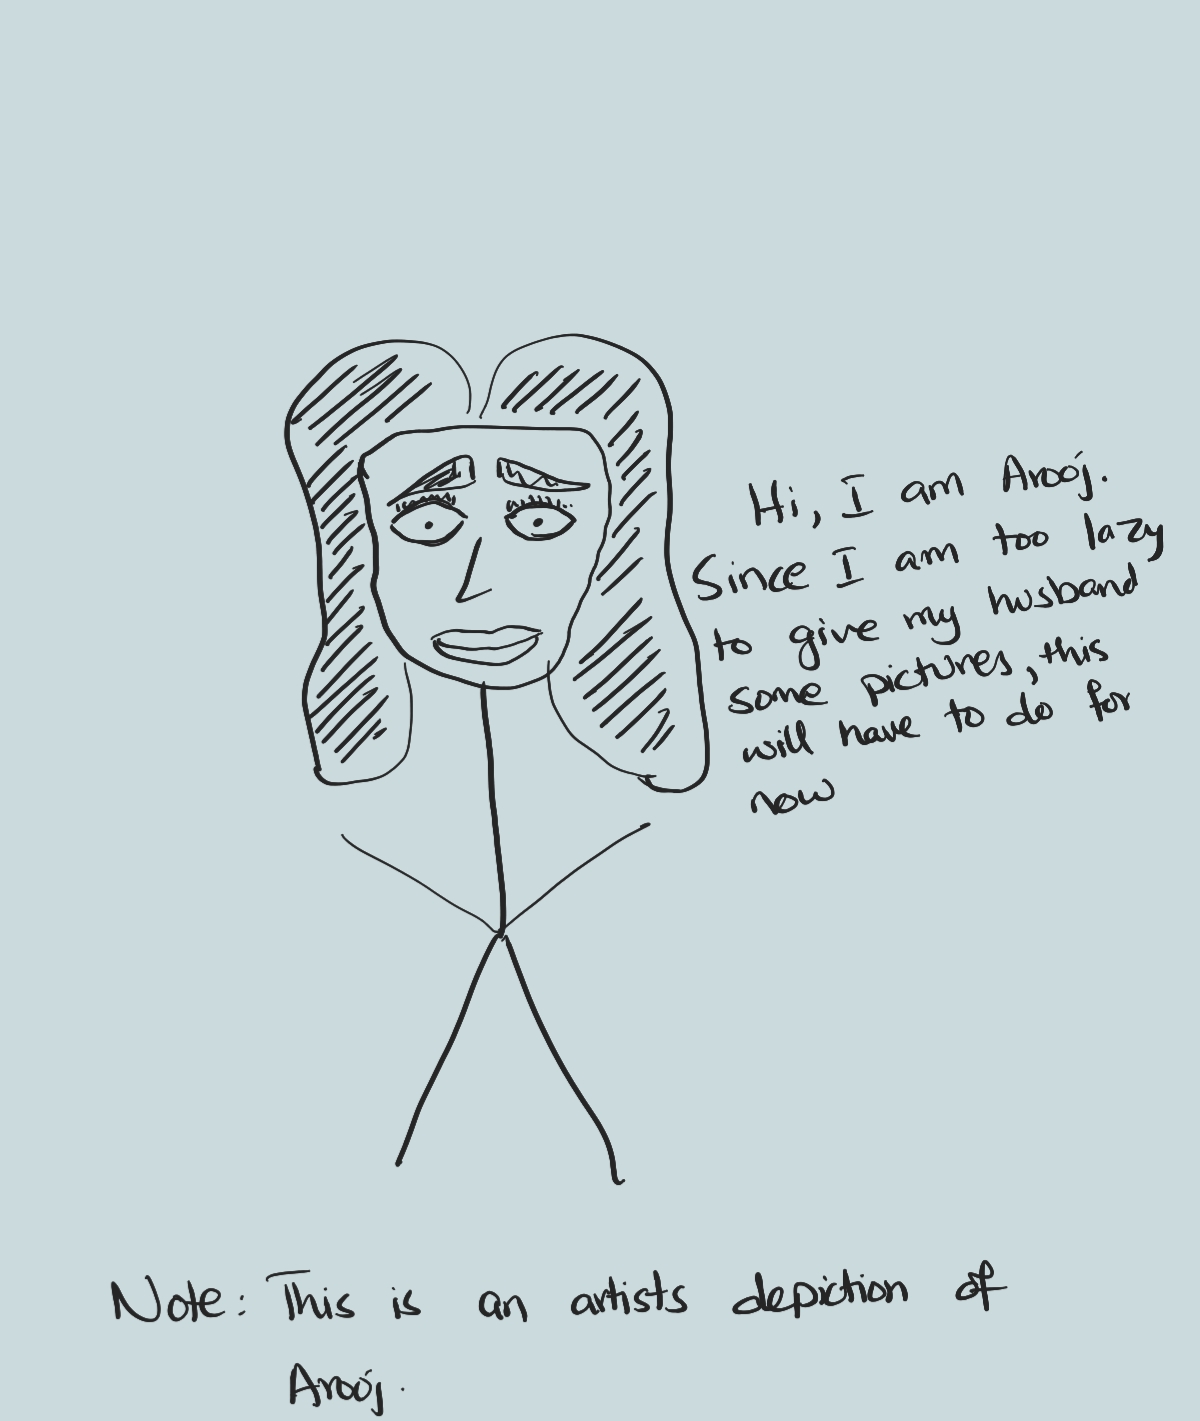 Hi, I am Arooj.
Since I am too lazy
to give my husband
some pictures, this
will have to do for
now
Note: This is an artists depiction of
Arooj.